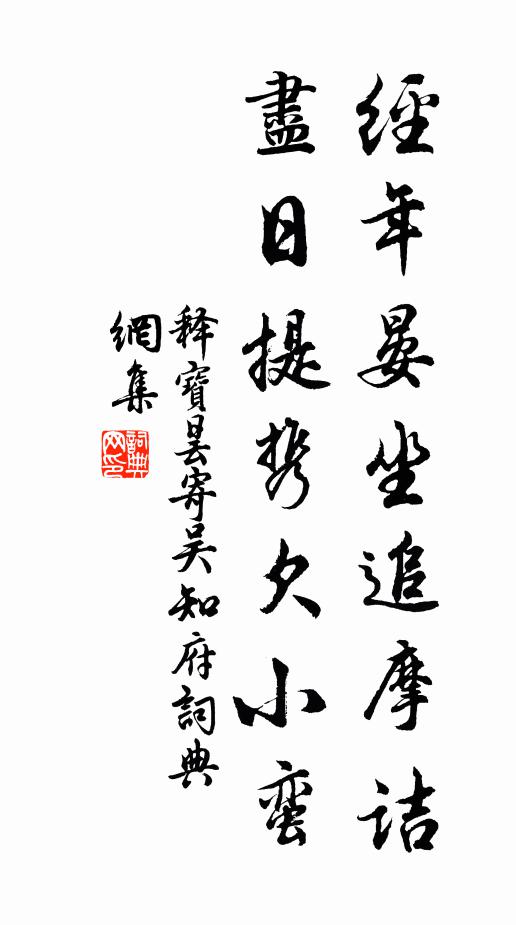 經年晏坐追摩詰
盡日提携欠小蛮
释寶曇寄吴知府詞典
網集
詞典
网印